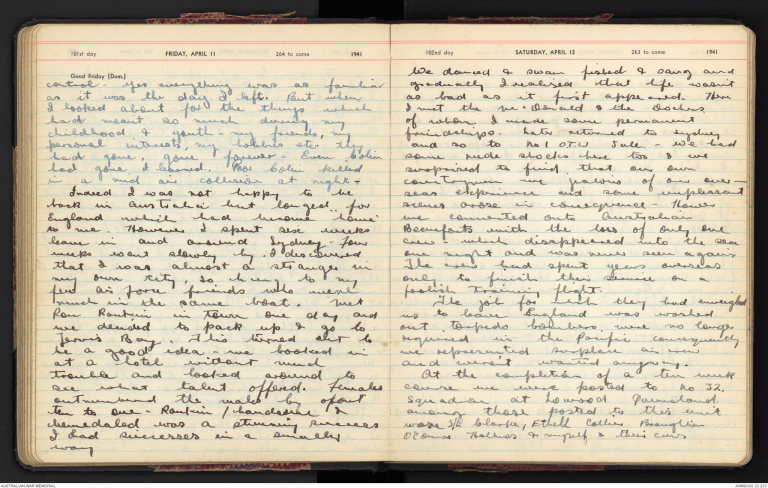 101st day FRIDAY, APRIL 11 264 to come 1941
Good Friday (Dom.)
control - yes everything was as familiar
as it was the day I left. But when
I looked about for the things which
had meant so much during my
childhood & youth - my friends, my
personal interests, my hobbies etc. they
had gone, gone forever - Even Colin
had gone I learned. Poor Colin killed
in a mid air collision at night -
Indeed I was not happy to be
back in Australia but longed for
England which had become home
to me. However I spent six weeks
leave in and around Sydney - Four
weeks went slowly by. I discovered
that I was almost a stranger in
my own city. So hung to my
few air force friends who were
much in the same boat. Met
Ron Rankin in town one day and
we decided to pack up & go to
Jervis Bay. This turned out to
be a good idea & we booked in
at a Hotel without much
trouble and looked around to
see what talent offered. Females
outnumbered the males by about
ten to one - Rankin / handsome &
bemedaled was a stunning success
I had successes in a smaller
way
102nd day SATURDAY, APRIL 12 263 to come 1941
We danced & swam fished & sang and
gradually I realised that life wasn't
as bad as it first appeared. Here
I met the McDonald & the
of whom I made some permanent
friendships. Later returned to Sydney
and so to No 1 O.T.U Sale. - We had
some rude shocks here too & we
surprised to find that our own
countrymen were jealous of our over-
seas experience and some unpleasant
scenes arose in consequence - However
we converted onto Australian
Beauforts with the loss of only one
crew - which disappeared into the sea
one night and was never seen again
The crew had spent years overseas
only to finish their service on a
foolish training flight.
The job for which they had inveigled
us to leave England was washed
out, torpedo bombers were no longer
required in the Pacific consequently
we represented surplus air crew
and weren't wanted anyway.
At the completion of a ten week
course we were posted to No 32.
Squadron at Lowood Queensland.
among those posted to this unit
were S/L Clarke, Ethell Collins Broughton
O'Connor Holmes & myself & their crews
AUSTRALIAN WAR MEMORIAL